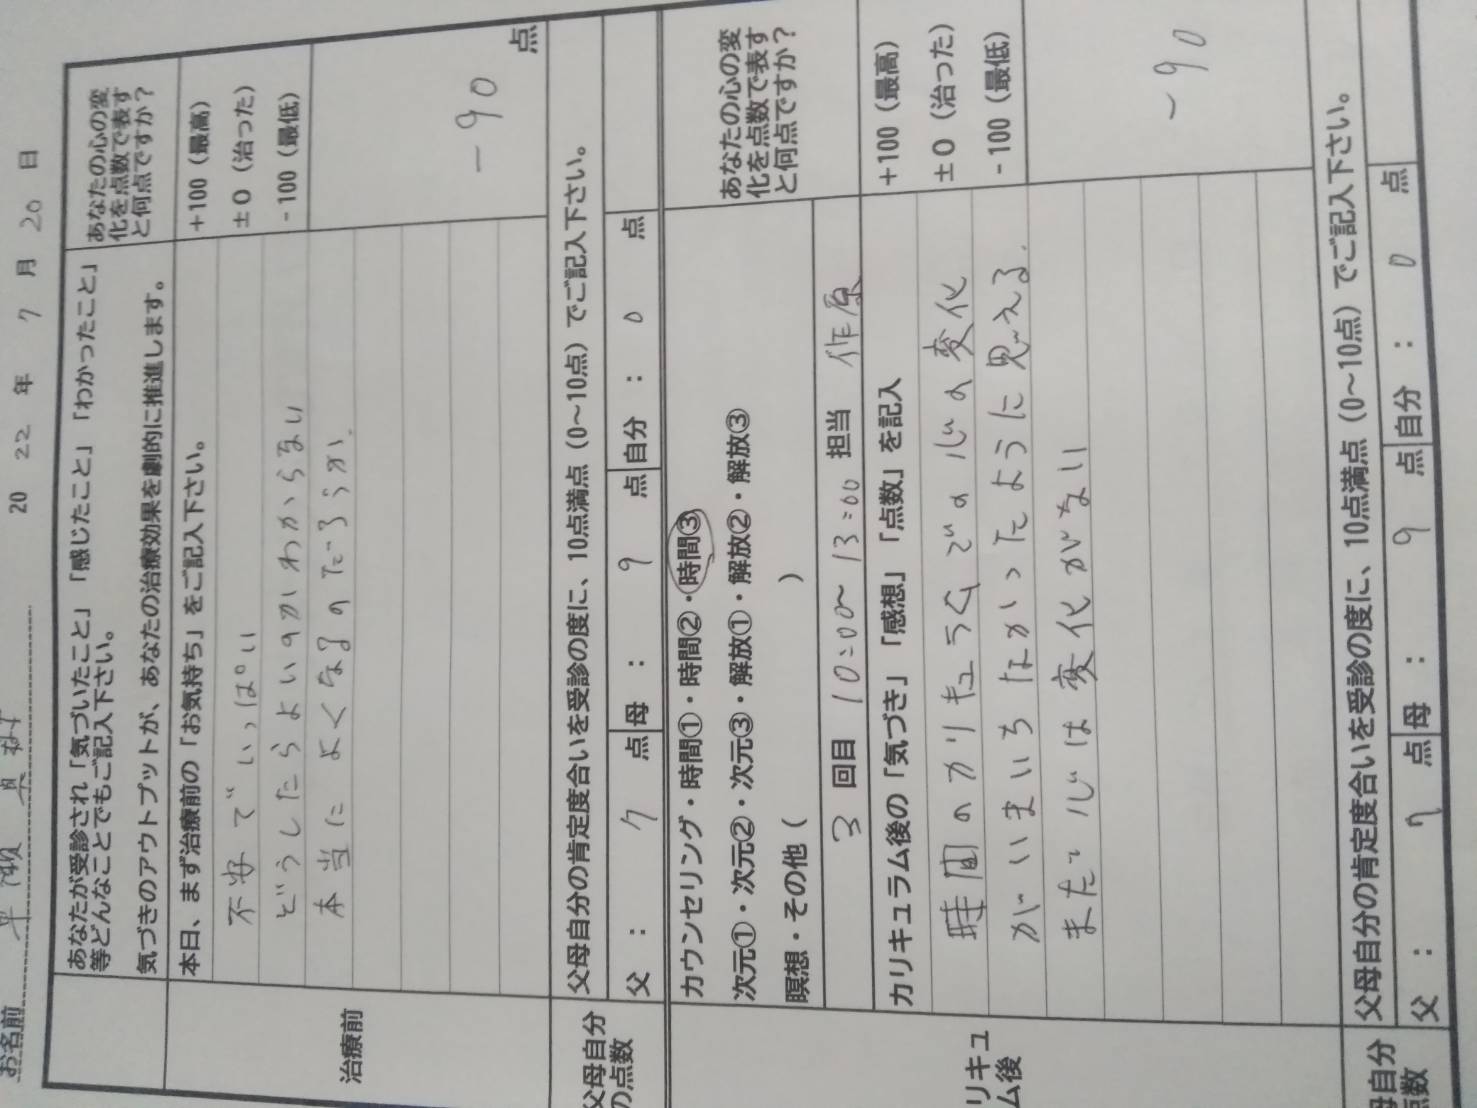 お名前
20 22 年 7 月 20 日
あなたが受診され「気づいたこと」「感じたこと」「わかったこと」
等どんなことでもご記入下さい。
気づきのアウトプットが、あなたの治療効果を劇的に推進します。
あなたの心の変
化を点数で表す
と何点ですか?
治療前
本日、まず治療前の「お気持ち」をご記入下さい。
不安でいっぱい
どうしたらよいのかわからない
本当によくなるのだろうか。
+100(最高)
±0(治った)
-100(最低)
-90
点
父母自分
の点数
父母自分の肯定度合いを受診の度に、10点満点(0~10点)でご記入下さい。
父: 7 点 母: 9 点 自分: 0 点
カウンセリング・時間①・時間②・時間③
次元①・次元②・次元③・解放①・解放②・解放③
瞑想・その他( )
3 回目 10:00~13:00 担当
あなたの心の変
化を点数で表す
と何点ですか?
リキュ
ム後
カリキュラム後の「気づき」「感想」「点数」を記入
時間のカリキュラムでの心の変化
がいまいちなかったように思える。
まだ心は変化がない
+100(最高)
±0(治った)
-100(最低)
-90
母自分
点数
父母自分の肯定度合いを受診の度に、10点満点(0~10点)でご記入下さい。
父: 7 点 母: 9 点 自分: 0 点